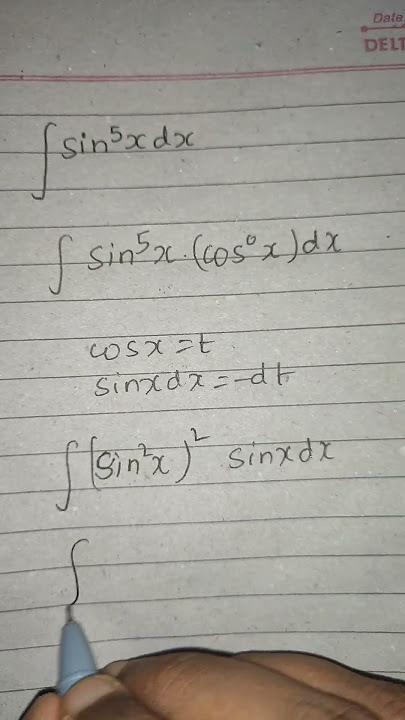 Date
DELT
∫sin⁵x dx
∫ sin⁵x.(cos⁰x)dx
cosx = t
sinxdx = -dt
∫(sin²x)² sinxdx
∫